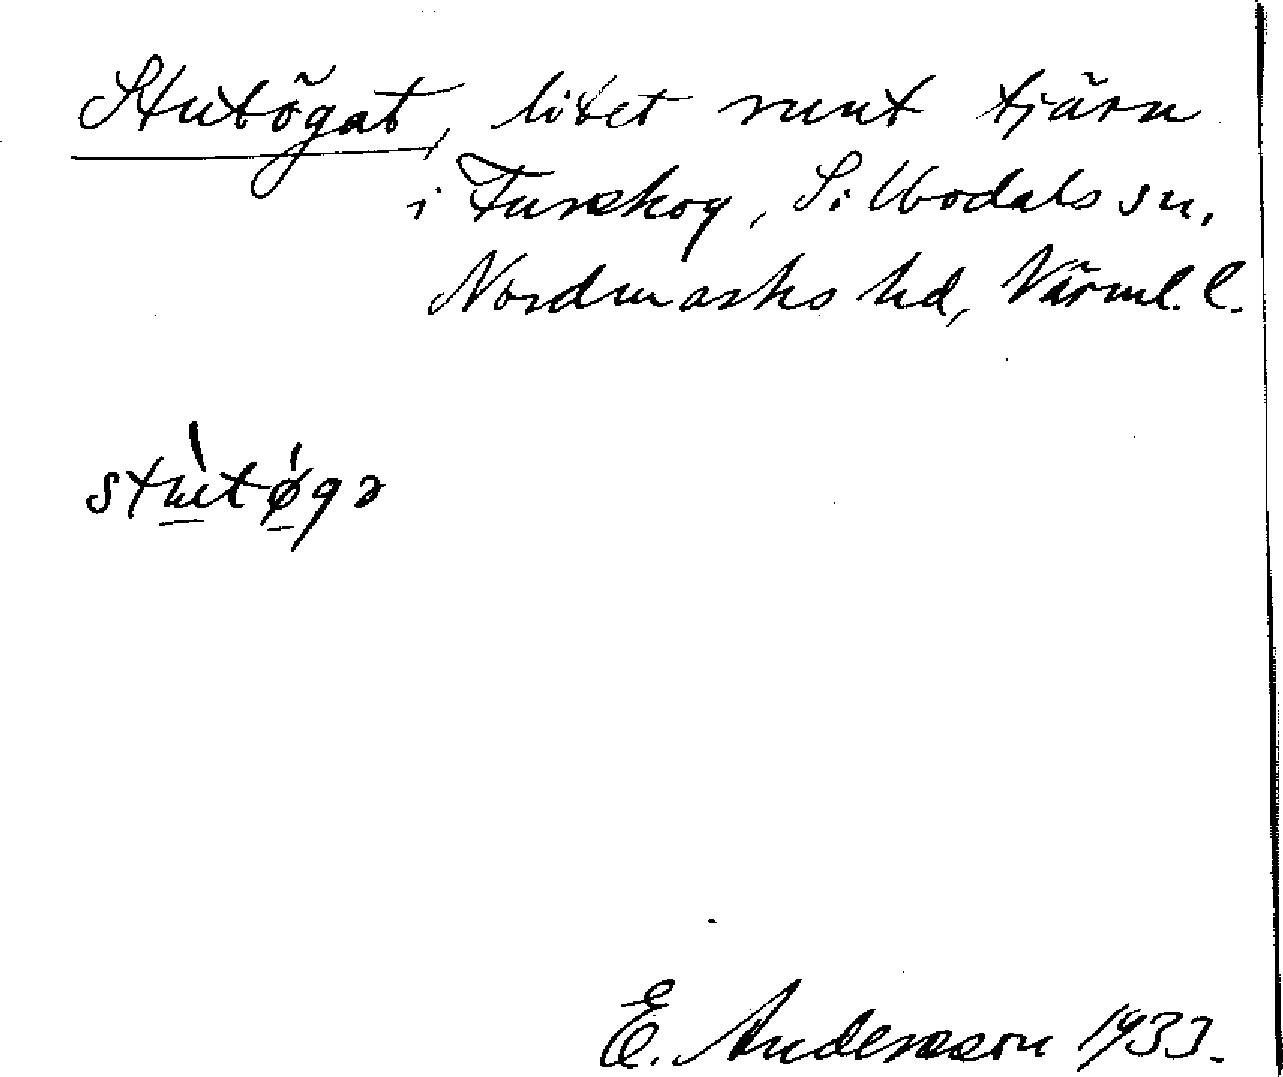 Stutögat, litet runt tjärn
i Furskog, Sillbodals sn,
Nordmarks hd, Värml. l.
stùtǿgə
E. Andersson 1933.